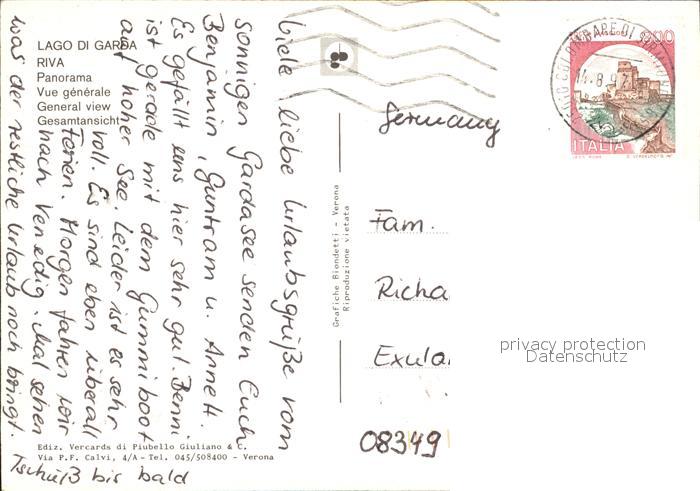 LAGO DI GARDA
RIVA
Panorama
Vue générale
General view
Gesamtansicht
Viele liebe Urlaubsgrüße vom
sonnigen Gardasee senden Euch
Benjamin, Guntram u. Annett.
Es gefällt uns hier sehr gut. Benni
ist gerade mit dem Gummiboot
auf hoher See. Leider ist es sehr
voll. Es sind eben überall
Ferien. Morgen fahren wir
nach Venedig. Mal sehen
was der restliche Urlaub noch bringt.
Tschüß bis bald
Ediz. Vercards di Piubello Giuliano & C.
Via P.F. Calvi, 4/A - Tel. 045/508400 - Verona
Grafiche Biondetti - Verona
Riproduzione vietata
Germany
Fam.
Richa
Exula
08349
14.8.9
ITALIA
privacy protection
Datenschutz